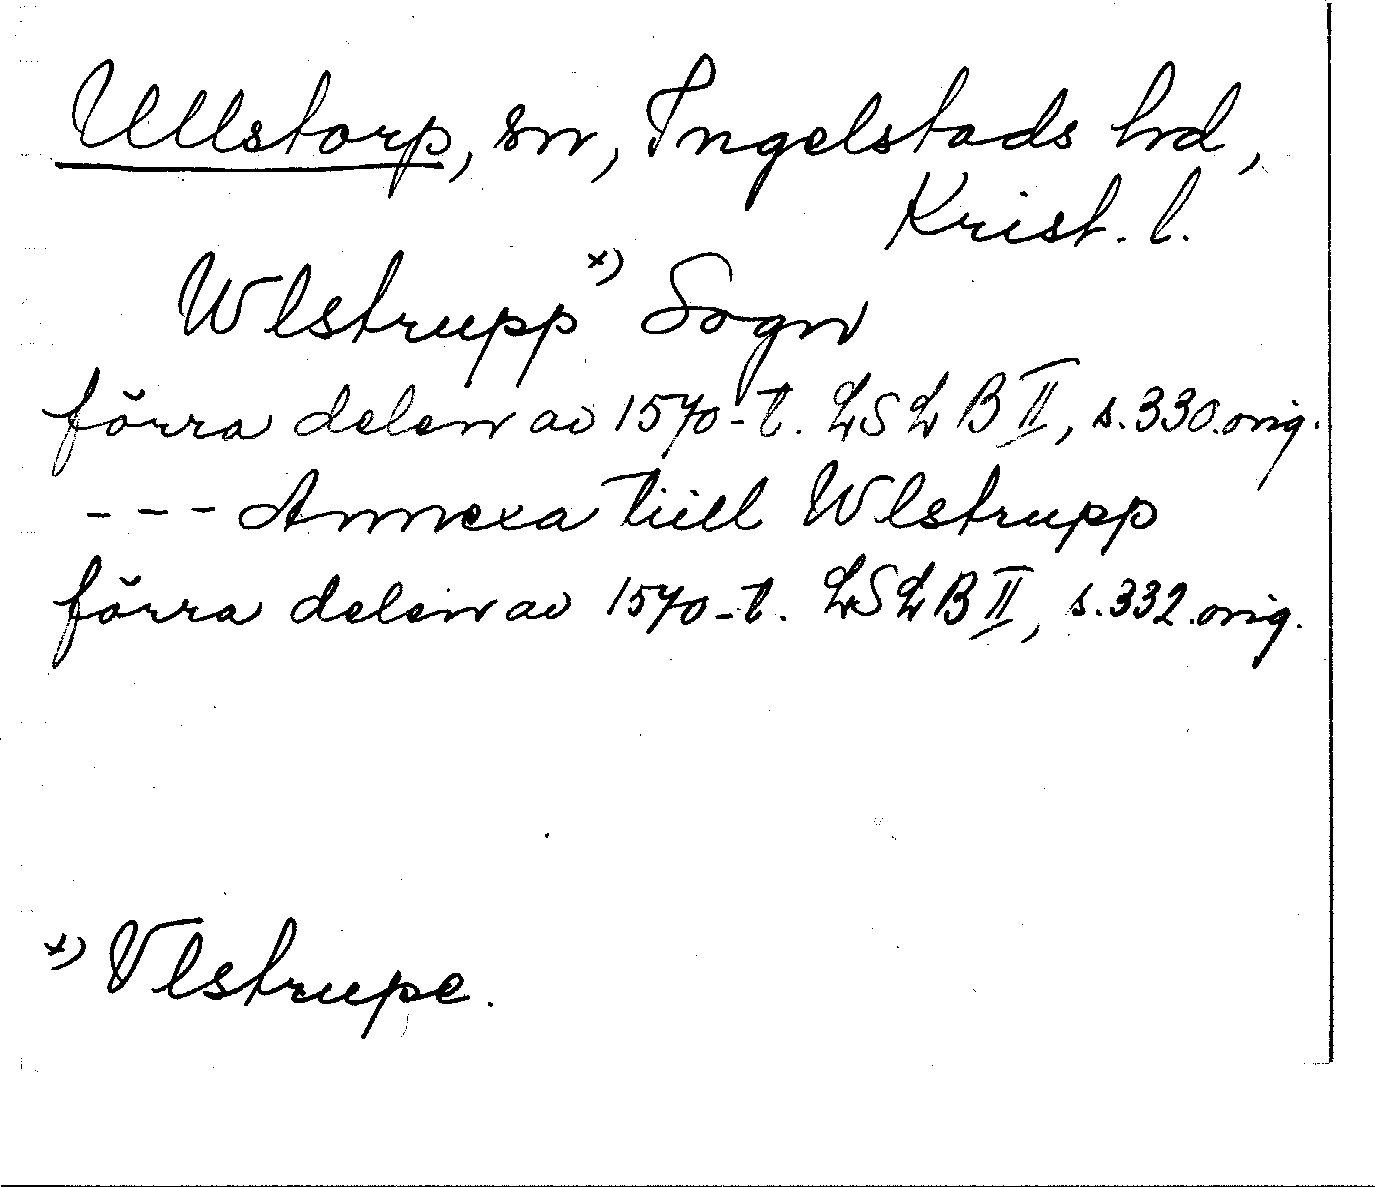 Ullstorp, sn, Ingelstads hrd,
Krist. l.
Wlstrupp x) Sogn
förra delen av 1570-t. LSLB II, s. 330. orig.
--- Annexa tiill Wlstrupp
förra delen av 1570-t. LSLB II, s. 332. orig.
x) Vlstrupe.